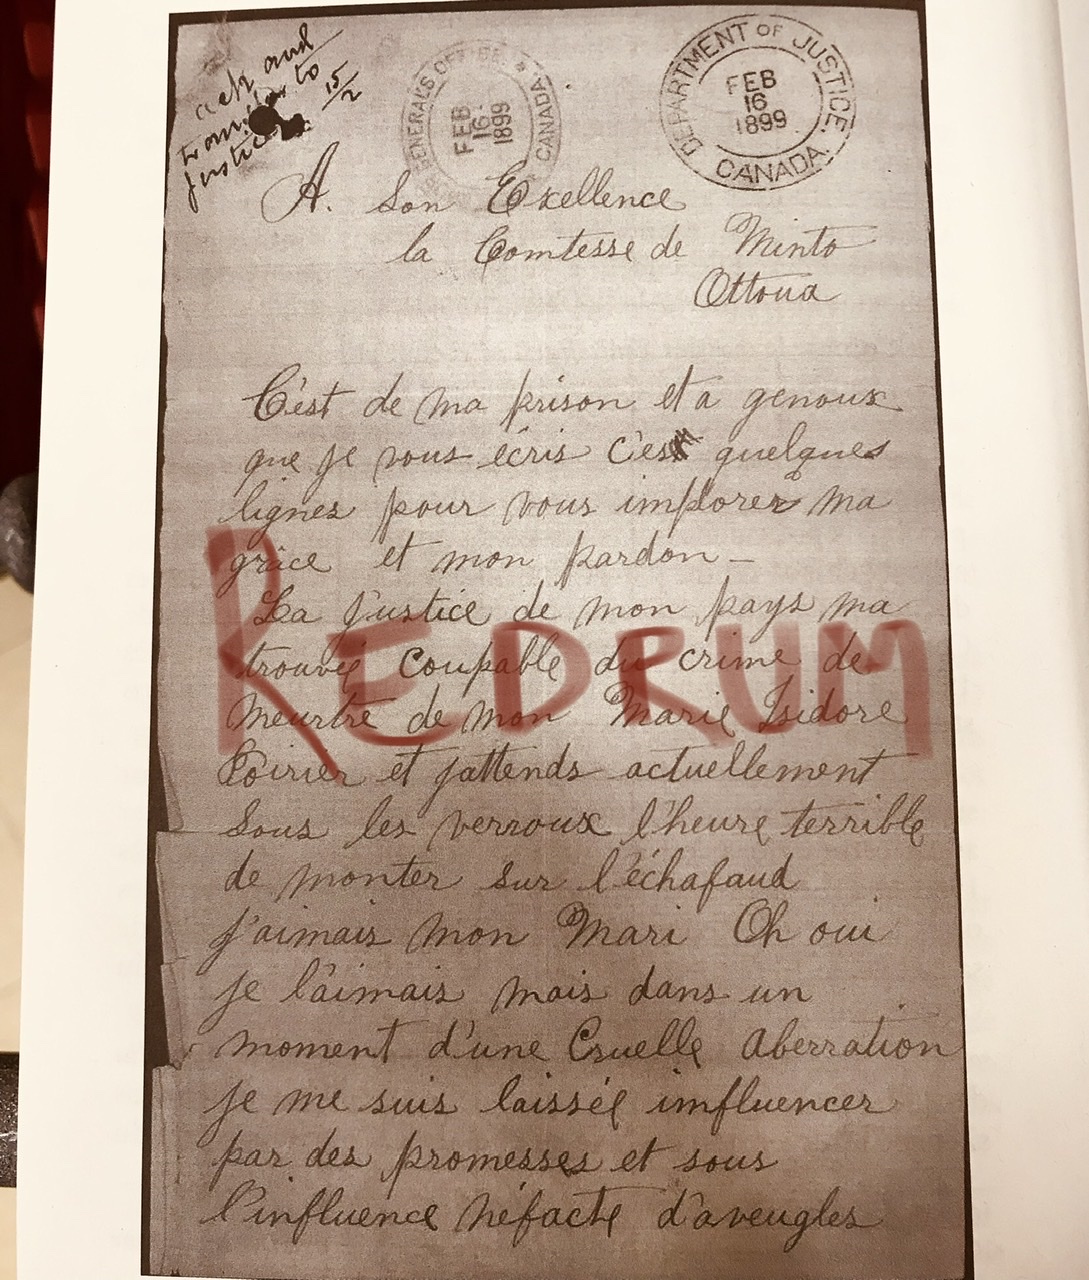 ack and
transfer to
Justice 15/2
GENERAL'S OFFICE. CANADA
FEB
16
1899
DEPARTMENT OF JUSTICE. CANADA.
FEB
16
1899
A. Son Exellence
la Comtesse de Minto
Ottoua
C'est de ma prison et a genoux
que je vous écris c'es quelques
lignes pour vous implorer ma
grâce et mon pardon –
La Justice de mon pays ma
trouvée Coupable du crime de
Meurtre de mon Marie Isidore
Poirier et j'attends actuellement
Sous les verroux l'heure terrible
de monter sur l'échafaud
j'aimais mon Mari Oh oui
je l'aimais mais dans un
moment d'une Cruelle Aberration
je me suis laissée imfluencer
par des promesses et sous
l'influence néfacte d'aveugles
REDRUM